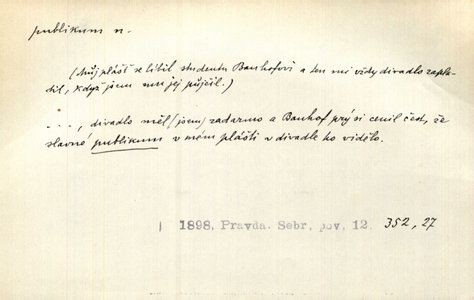 publikum n.
(Můj plášť se líbil studentu Bauhofovi a ten mi vždy divadlo zapla-
til, když jsem mu jej půjčil.)
..., divadlo měl (jsem) zadarmo a Bauhof prý si cenil čest, že
slavné publikum v mém plášti v divadle ho vidělo.
1898, Pravda. Sebr. pov. 12. 352, 27